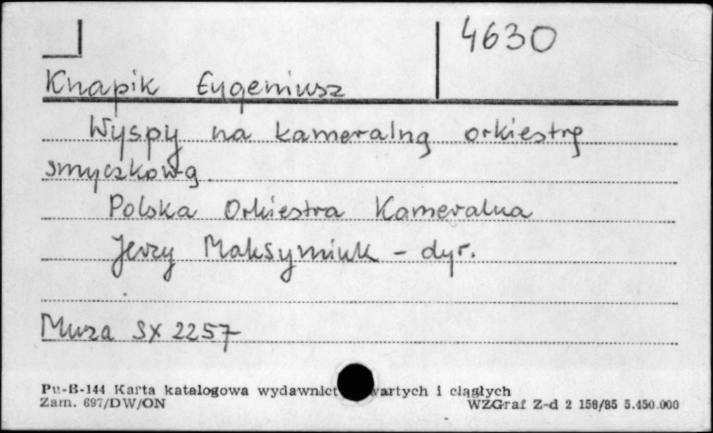 4630
Knapik Eugeniusz
Wyspy na kameralną orkiestrę
smyczkową
Polska Orkiestra Kameralna
Jerzy Maksymiuk – dyr.
Muza SX 2257
Pu-B-144 Karta katalogowa wydawnict wartych i ciągłych
Zam. 697/DW/ON WZGraf Z-d 2 158/85 5.450.000